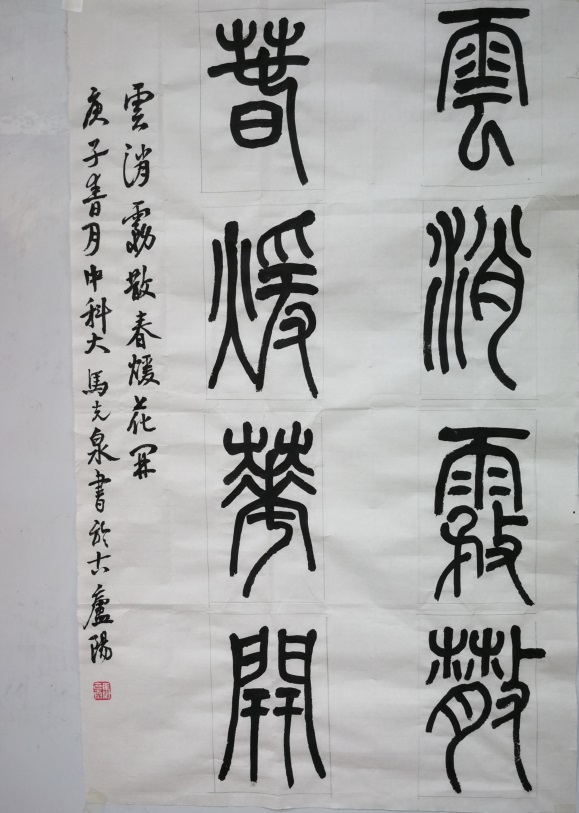 雲消霧散
春煖華開
雲消霧散春煖花開
庚子春月中科大馬克泉書於古廬陽